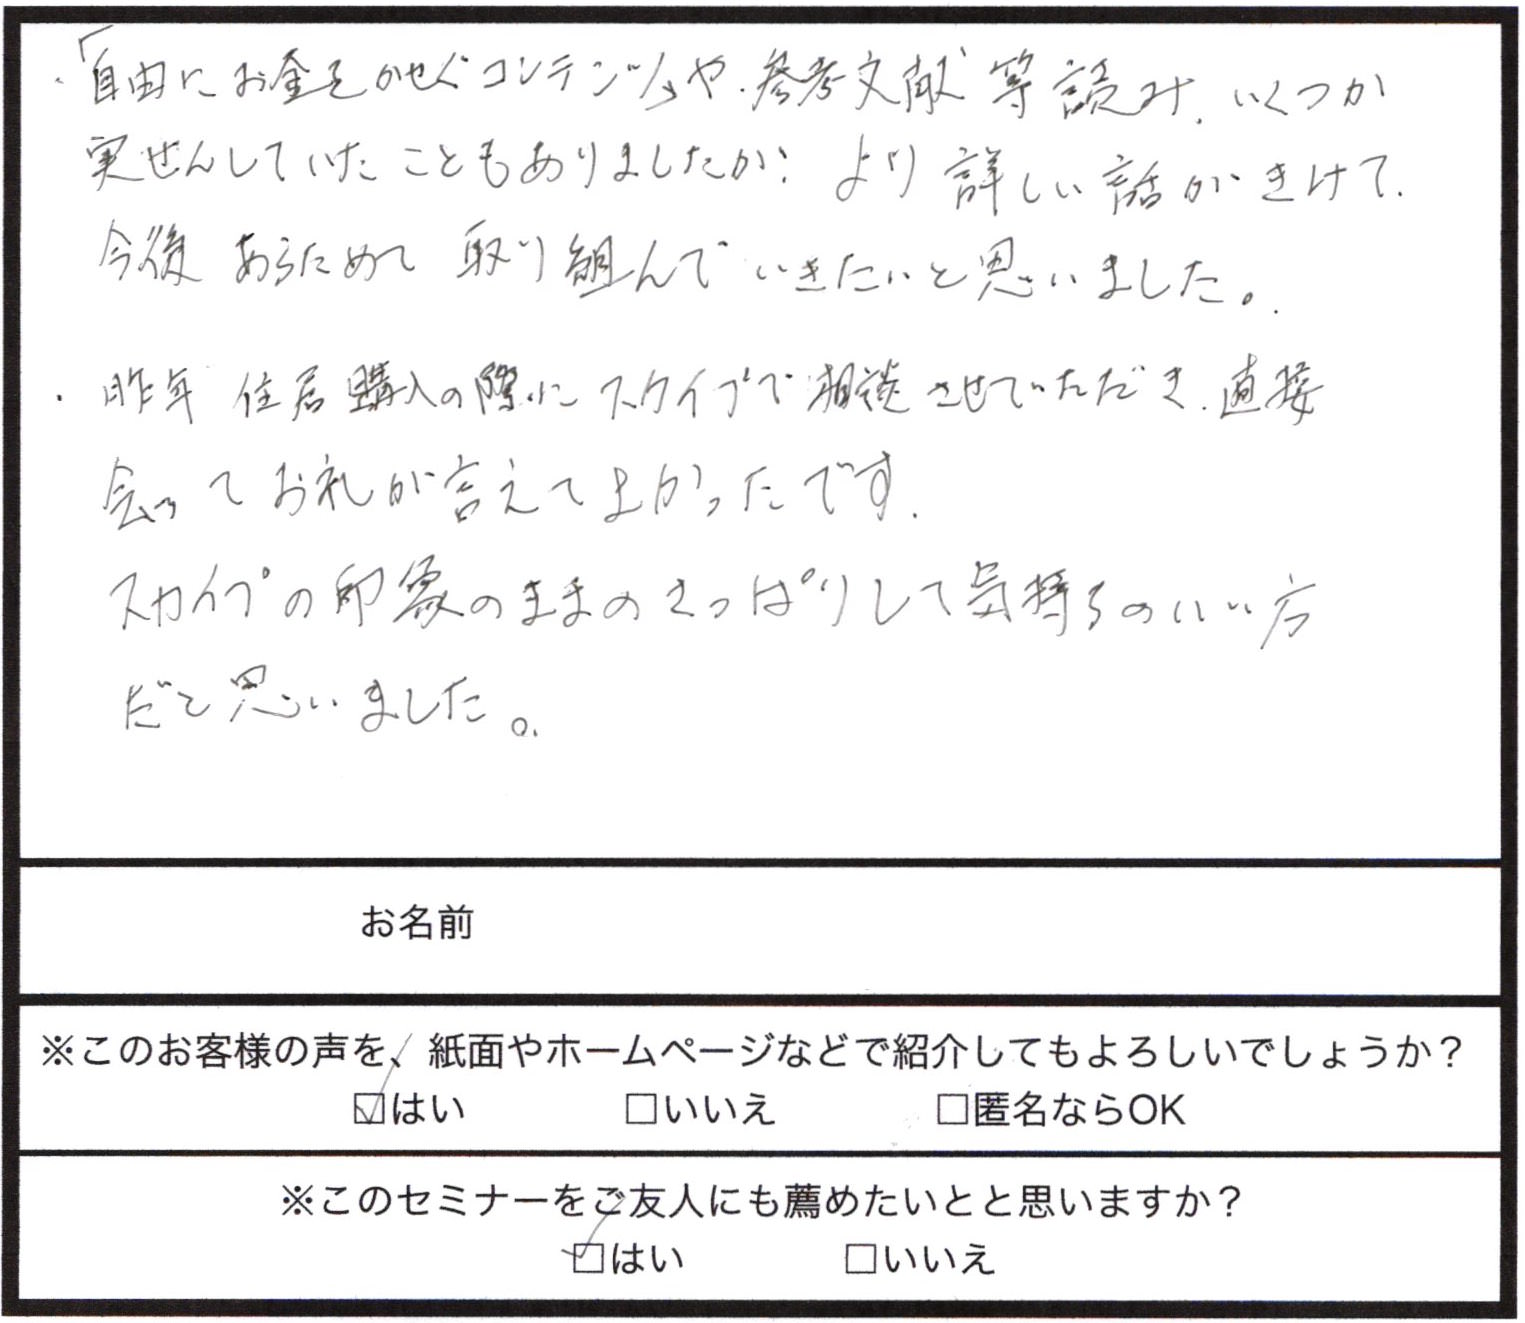 ・「自由にお金をかせぐコンテンツ」や、参考文献等読み、いくつか
実せんしていたこともありましたが、より詳しい話がきけて、
今後あらためて取り組んでいきたいと思いました。
・昨年 住居購入の際にスカイプで相談させていただき、直接
会ってお礼が言えてよかったです。
スカイプの印象のままのさっぱりして気持ちのいい方
だと思いました。
お名前
※このお客様の声を、紙面やホームページなどで紹介してもよろしいでしょうか？
☑はい □いいえ □匿名ならOK
※このセミナーをご友人にも薦めたいとと思いますか？
☑はい □いいえ